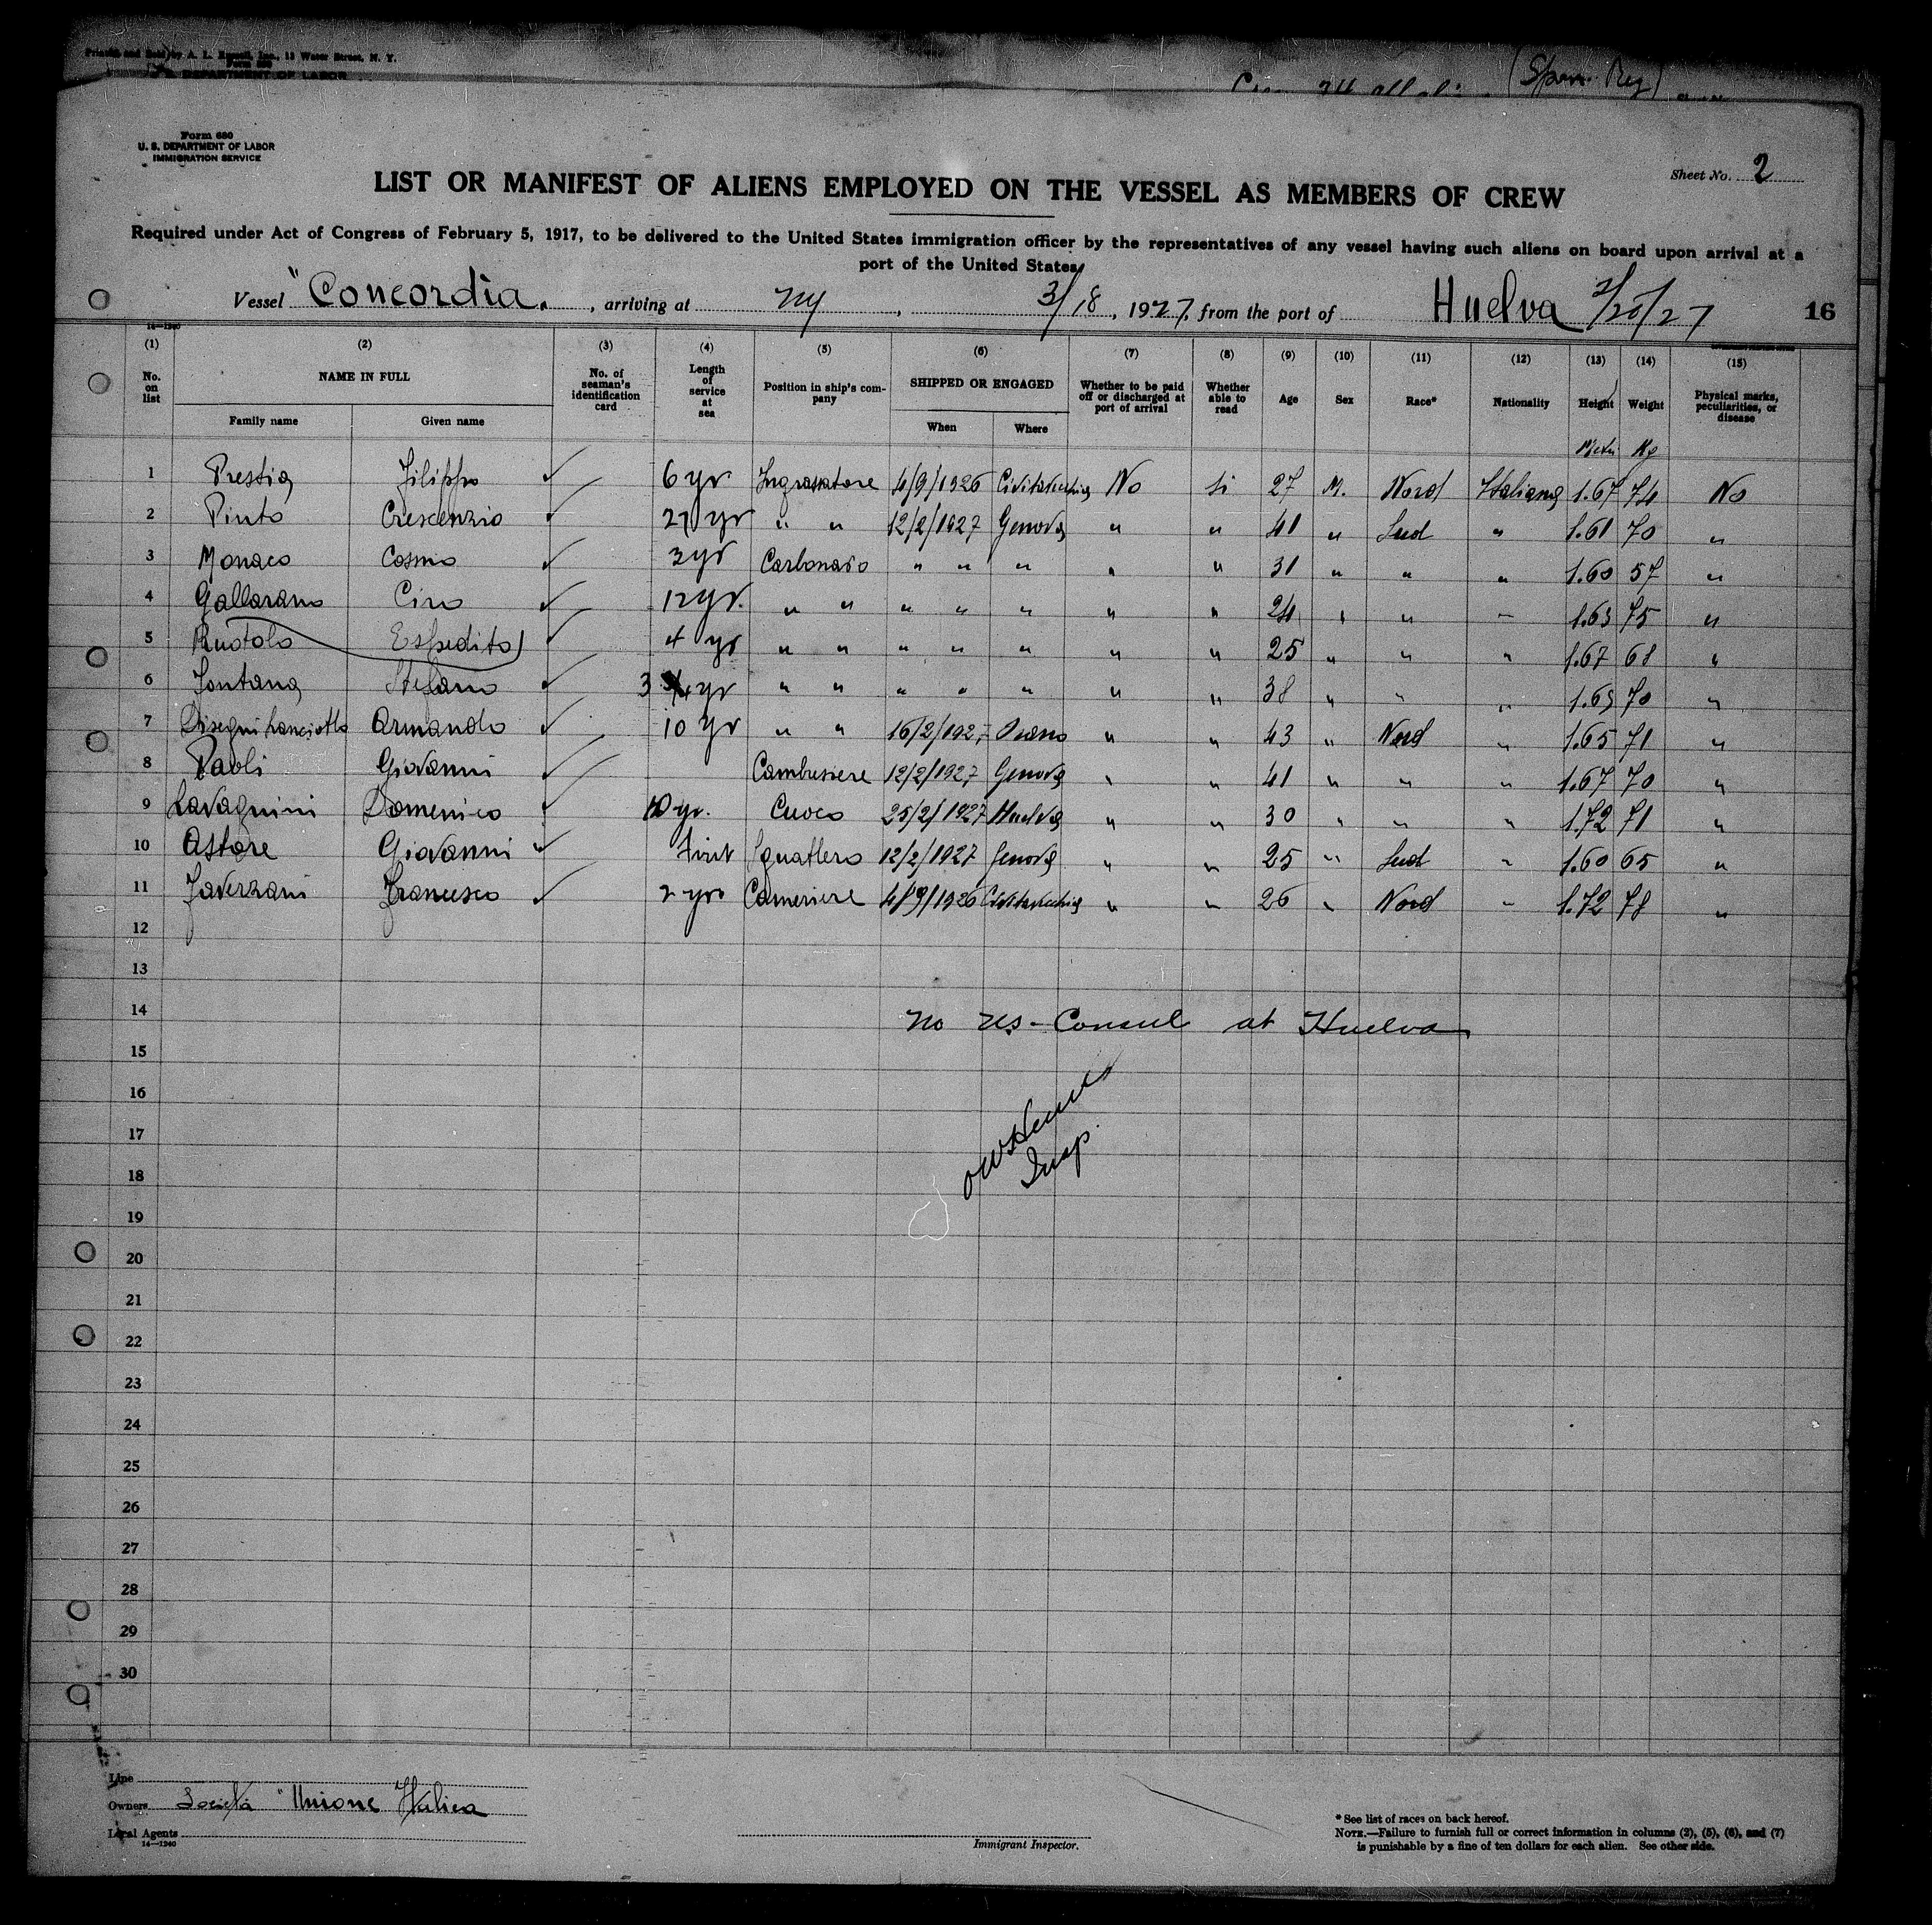 Printed and Sold by A. L. Russell, Inc., 13 Water Street, N. Y.
DEPARTMENT OF LABOR
(Span. Reg)
Form 680
U. S. DEPARTMENT OF LABOR
IMMIGRATION SERVICE
Sheet No. 2
LIST OR MANIFEST OF ALIENS EMPLOYED ON THE VESSEL AS MEMBERS OF CREW
Required under Act of Congress of February 5, 1917, to be delivered to the United States immigration officer by the representatives of any vessel having such aliens on board upon arrival at a
port of the United States
Vessel "Concordia. , arriving at NY , 3/18 , 1927, from the port of Huelva 2/25/27 16
14—1240
(1) (2) (3) (4) (5) (6) (7) (8) (9) (10) (11) (12) (13) (14) (15)
No. on list NAME IN FULL No. of seaman's identification card Length of service at sea Position in ship's company SHIPPED OR ENGAGED Whether to be paid off or discharged at port of arrival Whether able to read Age Sex Race* Nationality Height Weight Physical marks, peculiarities, or disease
Family name Given name When Where
Metri Kg
1 Prestia Filippo ✓ 6 yr Ingrassatore 4/9/1926 Civitavechia No si 27 M. Nord Italiana 1.67 74 No
2 Pinto Crescenzio ✓ 27 yr " " 12/2/1927 Genova " " 41 " Sud " 1.61 70 "
3 Monaco Cosmo ✓ 3 yr Carbonaro " " " " " 31 " " " 1.60 57 "
4 Gallarano Ciro ✓ 12 yr. " " " " " " " 24 " " " 1.63 75 "
5 Ruotolo Espedito ✓ 4 yr " " " " " " " 25 " " " 1.67 68 "
6 Fontana Stefano ✓ 3 yr " " " " " " " 38 " " " 1.69 70 "
7 Disegni Lanciotto Armando ✓ 10 yr " " 16/2/1927 " " 43 " Nord " 1.65 71 "
8 Paoli Giovanni ✓ Cambusiere 12/2/1927 Genova " " 41 " " " 1.67 70 "
9 Lavagnini Domenico ✓ 10 yr. Cuoco 25/2/1927 Huelva " " 30 " " " 1.72 71 "
10 Astore Giovanni ✓ First Sguattero 12/2/1927 Genova " " 25 " Sud " 1.60 65 "
11 Faverzani Francesco ✓ 2 yrs Cameriere 4/9/1926 Civitavechia " " 26 " Nord " 1.72 78 "
12
13
14 No US-Consul at Huelva
15
16
17
Insp.
18
19
20
21
22
23
24
25
26
27
28
29
30
Line
Owners Società "Unione Italica
Local Agents
14—1240
Immigrant Inspector.
* See list of races on back hereof.
NOTE.—Failure to furnish full or correct information in columns (2), (5), (6), and (7)
is punishable by a fine of ten dollars for each alien. See other side.